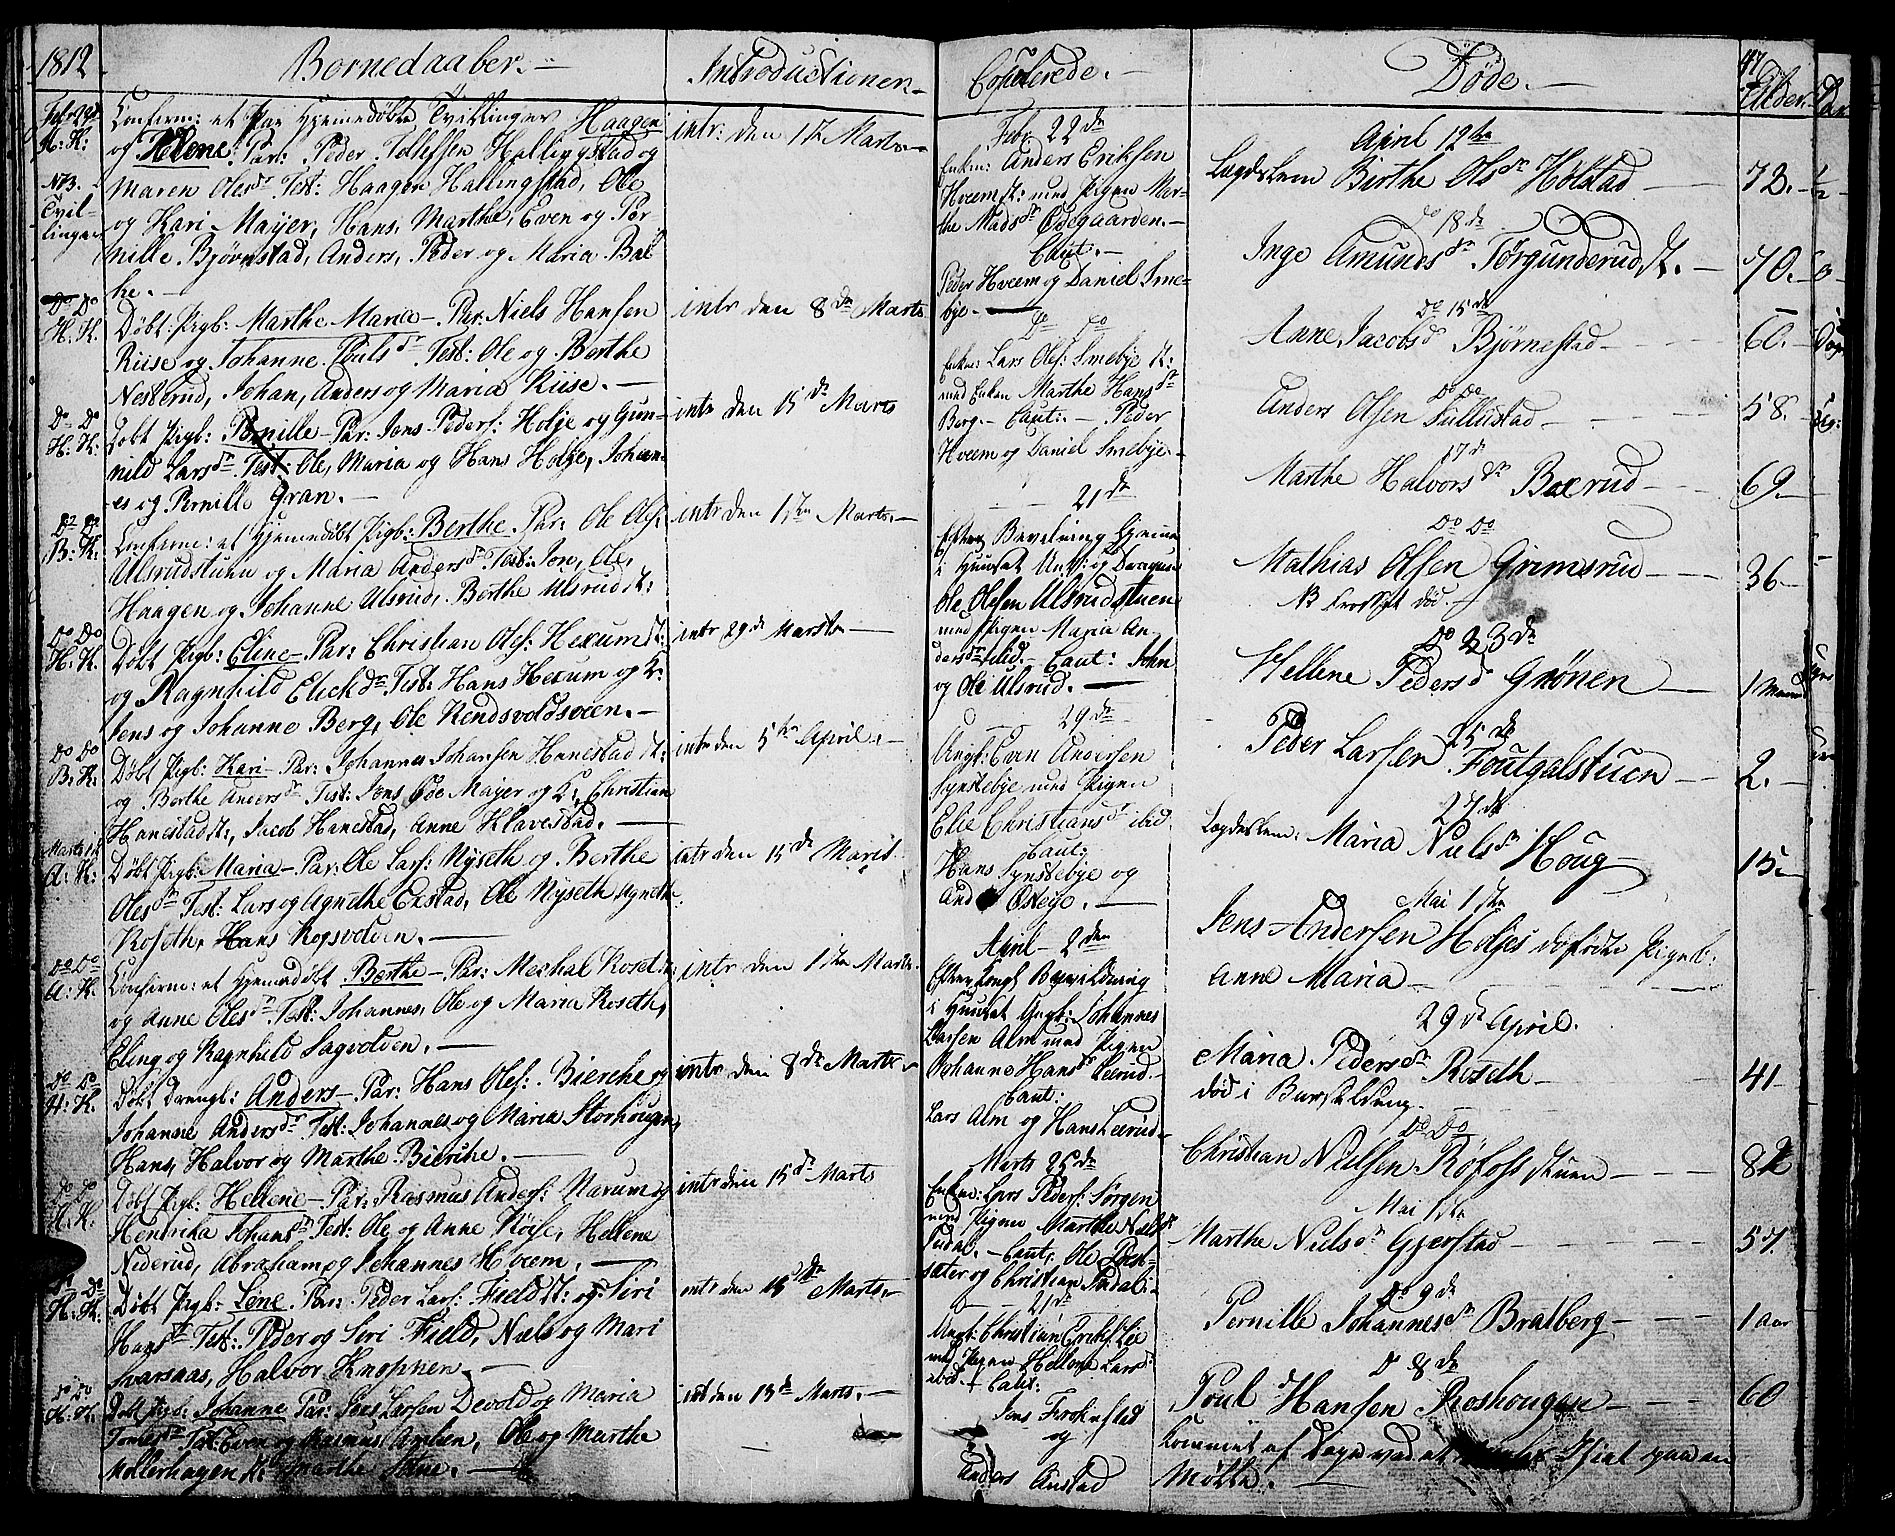 1812.
Børnedaaber.
Introductioner.
Copulerede.
Døde.
47
Alder.
Febr 29de
H: K:
NB.
Tvil-
linger
Confirm: et Par Hjemmedøbte Tvillinger Haagen
og Helene. Par: Peder Tollefsen Hallingstad og
Maren Olesdr Test: Haagen Hallingstad, Ole
og Kari Majer, Hans, Marthe, Even og Per
nille Bjørnstad, Anders, Peder og Maria Bal
ke.
intr: den 1ste Marts
Do Do
H: K.
Døbt Pigb: Marthe Maria. Par: Niels Hansen
Riise og Johanne Poulsdr Test: Ole og Berthe
Nesterud, Johan, Anders og Maria Riise.
intr den 8de Marts
Do Do
H: K:
Døbt Pigb: Pernille. Par: Jens Peders: Holje og Gun-
nild Larsdr Test: Ole, Maria og Hans Holje, Johan-
es og Pernille Gran.
intr den 15de Marts
Do Do
B: K:
Confirm: et Hjemmedøbt Pigb: Berthe. Par: Ole Ols:
Ulsrudstuen og Maria Andersdr Test: Jon, Ole,
Haagen og Johanne Ulsrud, Berthe Ulsrud st:
intr den 1ste Marts.
Do Do
H: K.
Døbt Pigb: Eline. Par: Christian Ols: Hexum st:
og Ragnhild Elickdr Test: Hans Hexum og K:
Jens og Johanne Berg, Ole Rendsvoldsveen.
intr 29de Marts
Do Do
B: K:
Døbt Pigb: Kari. Par: Johannes Johansen Hanestad st:
og Berthe Andersdr Test: Jens Majer og K: Christian
Hanestad st:, Jacob Hanestad, Anne Klavestad.
intr den 5te April.
Marts 1ste
A: K:
Døbt Pigb: Maria. Par: Ole Lars: Nyseth og Berthe
Olesdr Test: Lars og Agnethe Enstad, Ole Nyseth, Agnethe
Roseth, Hans Rogsvolden.
intr den 15de Marts.
Do Do
A: K.
Confirm: et Hjemmedøbt Berthe. Par: Mechal Roset st:
og Anne Olesdr Test: Johannes, Ole og Maria Roseth,
Eling og Ragnhild Sagvolden.
intr den 1ste Marts.
Do Do
H: K.
Døbt Drengb: Anders. Par: Hans Oles: Bierche og
Johanne Andersdr Test: Johannes og Maria Storhougen,
Hans, Halvor og Marthe Bierche.
intr den 8de Marts
Do Do
H: K.
Døbt Pigb: Hellene. Par: Rasmus Anders: Narum og
Hendrika Johansdr Test: Ole og Anne Høyle, Hellene
Nederud, Abraham og Johannes Hveem.
intr den 15de Marts
Do Do
H: K:
Døbt Pigb: Lene. Par: Peder Lars: Field st: og Siri
Hansdr Test: Peder og Siri Field, Niels og Mari
Svarsaas, Halvor Knopnen.
intr den 15de Marts.
Do Do
H. K.
Døbt Pigb: Johanne Par: Jens Larsen Devold og Maria
Test: Even og Rasmus Amlien, Ole og Marthe
Mollerhagen st: Marthe Stene.
intr den 13de Marts.
Febr 22de
Enkm: Anders Eriksen
Hveem st: med Pigen Mar-
the Madsdr Ødegaarden.
Caut.
Peder Hveem og Daniel Sme-
bye.
Do Do
Enkm: Lars Ols: Smebye st:
med Enken Marthe Hansdr
Berg. Caut: Peder
Hveem og Daniel Smebye.
21de
Efter Bevilning hjemme
i Huuset Ungk: og Dragun
Ole Olesen Ulsrudstuen
med Pigen Maria An-
dersdr ibid. Caut: John
og Ole Ulsrud.
29de
Ungk: Even Andersen
Synstebye med Pigen
Elie Christiansdr ibid.
Caut:
Hans Synstebye og
And Østbye.
April 2den
Efter kongl Bevilning
i Huuset Ungk: Johannes
Larsen Alm med Pigen
Johanne Hansdr Leerud.
Caut:
Lars Alm og Hans Leerud.
Marts 25de
Enkm: Lars Peders: Sørgen
med Pigen Marthe Nielsdr
Sudal. Caut: Ole Øvst-
sæter og Christian Sudal.
21de
Ungk: Christian Eriks: Lie
med Pigen Hellene Larsdr
ibid. Caut:
Jens
og
Anders Anstad
April 12te
Lægdslem Birthe Olsdr Holstad 72.
Do 18de
Inge Amundsdr Torgunderud st. 70.
Do 15de
Anne Jacobsdr Bjørnestad 60.
Do Do
Anders Olsen Sullustad 58.
17de
Marthe Halvorsdr Baxrud 69.
Do Do
Mathias Olsen Grimsrud 36
NB Krosset død.
Do 23de
Hellene Pedersdr Grønen 1 Maan
25de
Peder Larsen Foutgalstuen 2.
27de
Lægdslem: Maria Nielsdr Houg 15
Mai 1ste
Jens Andersen Holjes dødfødte Pigeb:
Anne Maria
29de April.
Maria Pedersdr Roseth 41
død i Barselseng.
Do Do
Christian Nielsen Røfoss stuen 82
Mai 1ste
Marthe Nielsdr Gjerstad 57
Do 9de
Pernille Johannesdr Bratberg 1 Aar
D 8de
Poul Hansen Roshougen 60
Kommet af Dage ved et Hjul paa en
Mølle.